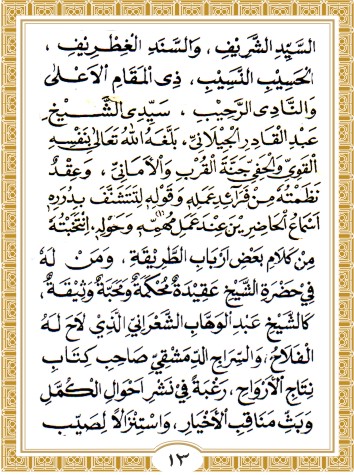 السَّيِّدِ الشَّرِيْفِ، وَالسَّنَدِ الْغِطْرِيْفِ،
الْحَسِيْبِ النَّسِيْبِ، ذِى الْمَقَامِ الْأَعْلَى
وَالنَّادِى الرَّحِيْبِ، سَيِّدِى الشَّيْخِ
عَبْدِ الْقَادِرِ الْجِيْلَانِيِّ، بَلَّغَهُ اللهُ تَعَالَى بِنَفْسِهِ
الْقَوِيِّ وَالْخَفِيِّ جَنَّةَ الْقُرْبِ وَالْأَمَانِيِّ، وَعِقْدٌ
نَظَمْتُهُ مِنْ فَرَآئِدِ عَمَلِهِ وَقَوْلِهِ لِتَتَشَنَّفَ بِدُرَرِهِ
أَسْمَاعُ الْحَاضِرِيْنَ عِنْدَ عَمَلِ مُهِمِّهِ وَحَوْلِهِ. اِنْتَخَبْتُهُ
مِنْ كَلَامِ بَعْضِ أَرْبَابِ الطَّرِيْقَةِ، وَمَنْ لَهُ
فِيْ حَضْرَةِ الشَّيْخِ عَقِيْدَةٌ مُحْكَمَةٌ وَمَحَبَّةٌ وَثِيْقَةٌ،
كَالشَّيْخِ عَبْدِ الْوَهَّابِ الشَّعْرَانِيِّ الَّذِيْ لَاحَ لَهُ
الْفَلَاحُ، وَالسِّرَاجِ الدِّمَشْقِيِّ صَاحِبِ كِتَابِ
نِتَاجِ الْأَرْوَاحِ، رَغْبَةً فِيْ نَشْرِ أَحْوَالِ الْكُمَّلِ
وَبَثِّ مَنَاقِبِ الْأَخْيَارِ، وَاسْتِنْزَالًا لِصَيِّبِ
١٣